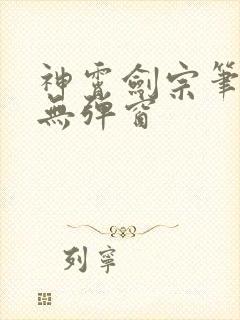 神霄劍宗筆
無彈窗
列寧